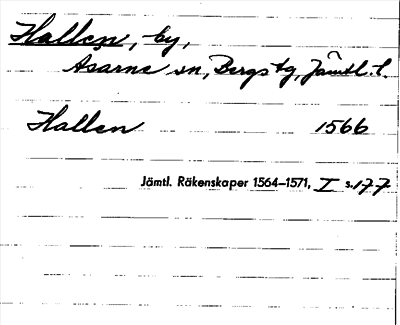 Hallen, by,
Åsarne sn, Bergs tg, Jämtl. l.
Hallen 1566
Jämtl. Räkenskaper 1564–1571, I s. 177